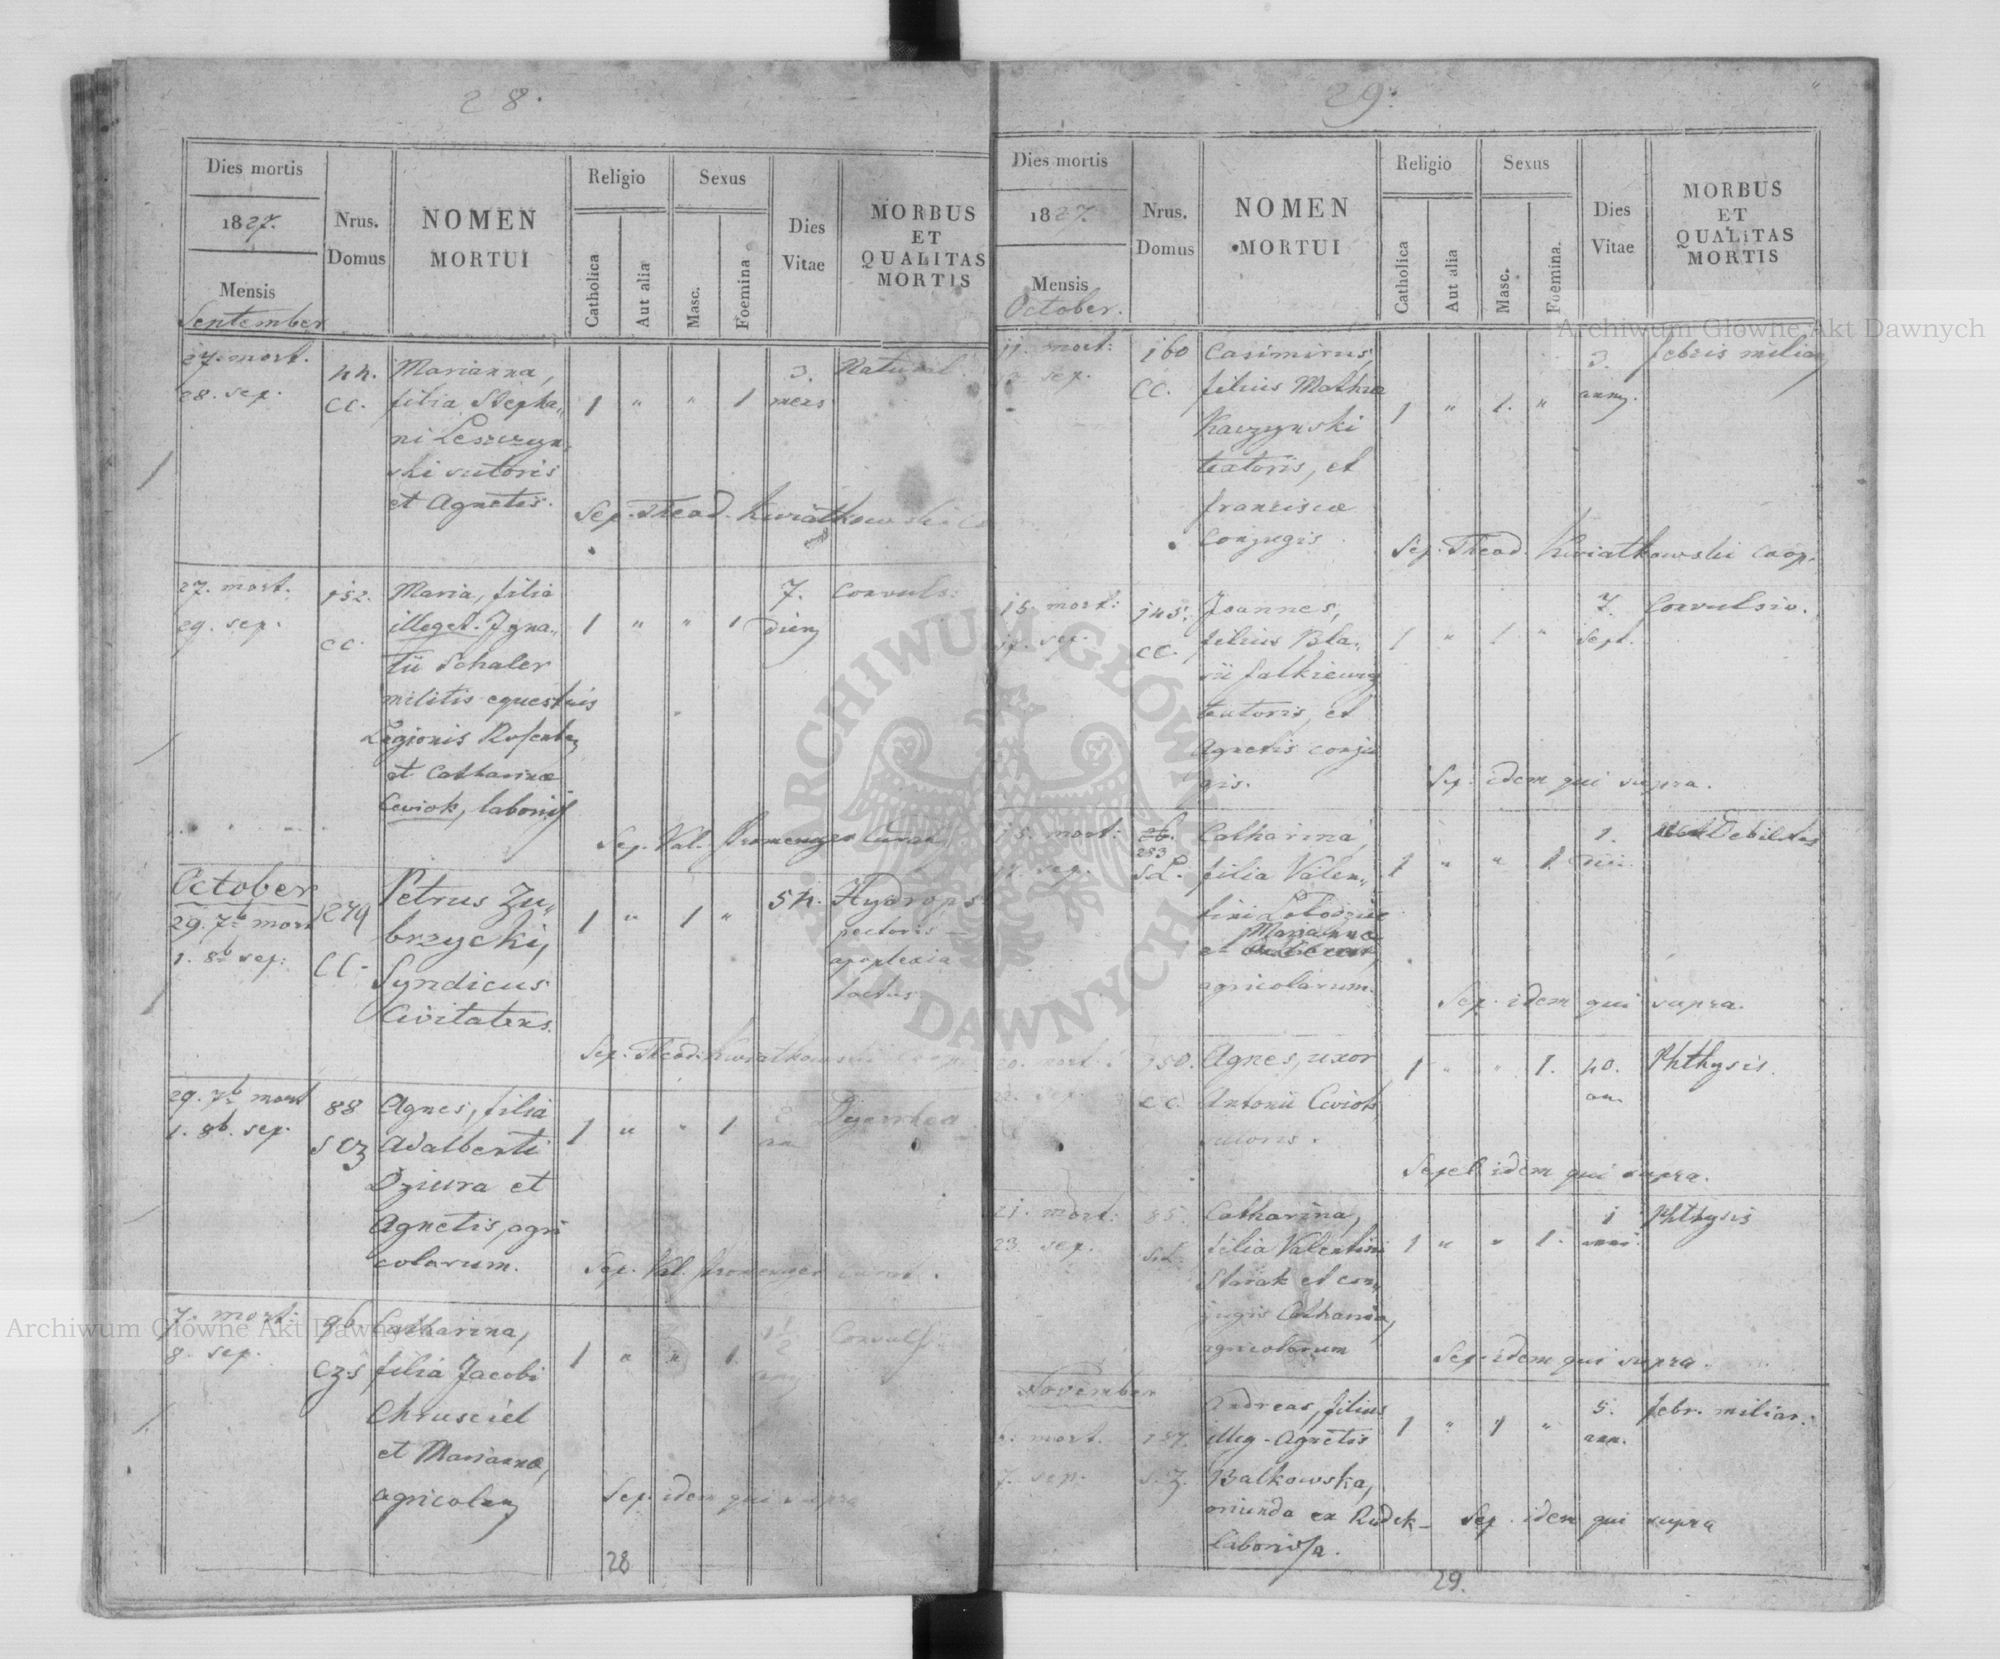 28.
Dies mortis
1827.
Mensis
September
Nrus.
Domus
NOMEN
MORTUI
Religio
Catholica
Aut alia
Sexus
Masc.
Foemina
Dies
Vitae
MORBUS
ET
QUALITAS
MORTIS
27. mort.
28. sep.
44.
CC.
Marianna,
filia Stepha„
ni Leszczyn„
ski sutoris
et Agnetis.
1 " " 1
3.
mens
Natural.
Sep. Thead. Kwiatkowski
27. mort.
29. sep.
152.
CC.
Maria, filia
illeget. Igna„
tii Schaler
militis equestris
Legionis
et Catharinae
Cwiok, laborios
1 " " 1
7.
dierum
Convuls:
Sep. Val. Curat
October
29. 7b mort
1. 8b sep:
279
CC.
Petrus Zu„
brzycki,
Syndicus
Civitatens.
1 " 1 "
54.
Hydrops
pectoris
apoplexia
tactus
Sep. Thead. Kwiatkowski Coop.
29. 7b mort
1. 8b. sep.
88
Agnes, filia
Adalberti
Dziura et
Agnetis, agri
colarum.
1 " " 1
2
an
Dyarrhea
Sep. Val. curat.
7. mort:
8. sep.
96
Czs
Catharina,
filia Jacobi
Chrusciel
et Mariannae,
agricolarum
1 " " 1.
1 1/2
Convuls:
Sep. idem qui supra
28
29.
Dies mortis
1827.
Mensis
October.
Nrus.
Domus
NOMEN
MORTUI
Religio
Catholica
Aut alia
Sexus
Masc.
Foemina.
Dies
Vitae
MORBUS
ET
QUALITAS
MORTIS
11. mort:
sep.
160
CC.
Casimirus,
filius Mathiae
Kaczynski
textoris, et
Franciscae
Conjugis
1 " 1. "
3.
annor.
febris miliar
Sep. Thead. Kwiatkowski Coop.
15. mort:
sep.
145.
CC.
Joannes,
filius Bla„
sii Falkiewicz
textoris, et
Agnetis conju
gis.
1 " 1 "
7.
Sept.
Convulsio.
Sep. idem qui supra.
15. mort:
sep.
283
Sd.
Catharina,
filia Valen„
tini
et Mariannae
agricolarum.
1 " " 1
1.
diei.
Debilitas
Sep. idem qui supra.
20. mort:
22. sep.
150.
CC.
Agnes, uxor
Antonii Cwiok
sutoris.
1 " " 1.
40.
an.
Phthysis.
Sepel. idem qui supra.
21. mort:
23. sep.
85.
Sd.
Catharina,
filia Valentini
Starak et con„
jugis Catharina,
agricolarum
1 " " 1.
1
anni.
Phthysis
Sep. idem qui supra.
November
6. mort.
7. sep.
157.
S. Z.
Andreas, filius
illeg. Agnetis
Balkowska,
oriunda ex Rudek
Laboriosa.
1 " 1 "
5.
ann.
febr. miliar.
Sep. idem qui supra
29.
Archiwum Główne Akt Dawnych
Archiwum Główne Akt Dawnych
ARCHIWUM GŁÓWNE AKT DAWNYCH